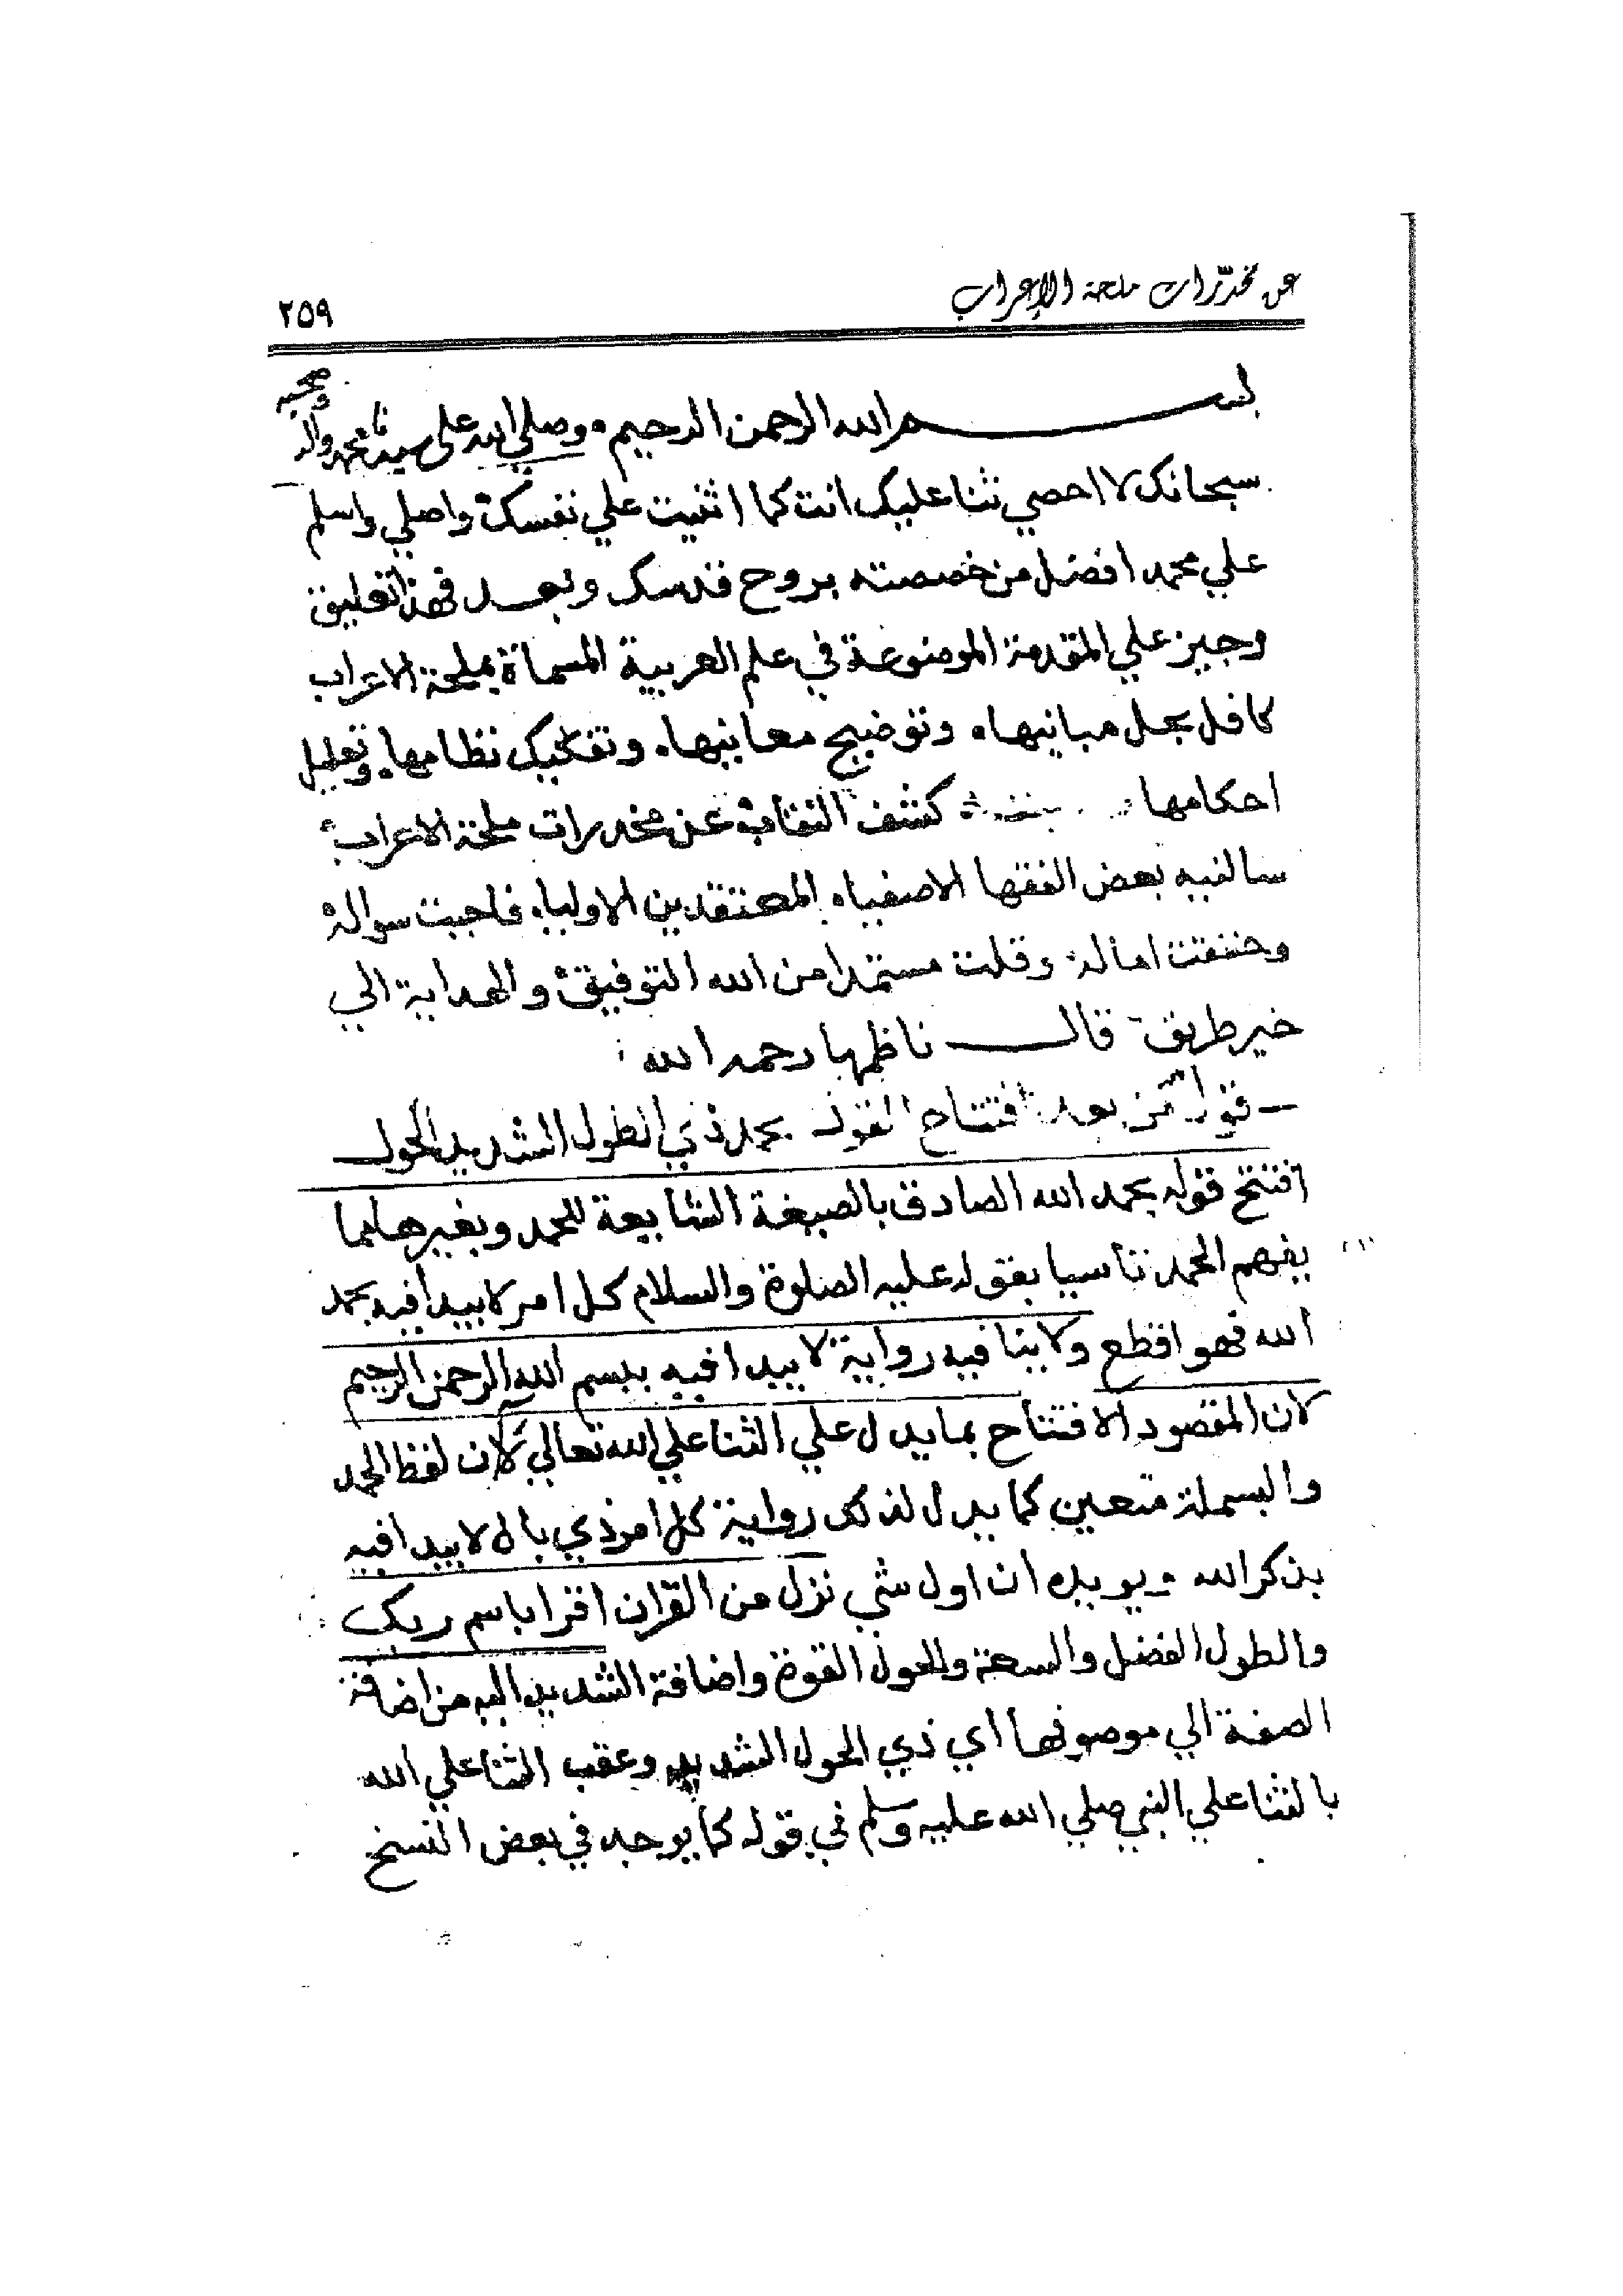 عن مخدّرات ملحة الإعراب
٢٥٩
بسم الله الرحمن الرحيم . وصلي الله علي سيدنا محمد واله وصحبه
سبحانك لا احصي ثنا عليك انت كما اثنيت علي نفسك واصلي واسلم
علي محمد افضل من خصصته بروح قدسك وبعد فهذا تعليق
وجيز علي المقدمة الموضوعة في علم العربية المسماة بملحة الاعراب
كافل بحل مبانيها . وتوضيح معانيها . وتفكيك نظامها . وتعليل
احكامها كشف النقاب عن مخدرات ملحة الاعراب
سالنيه بعض الفقها الاصفياء المعتقدين الاولياء فاجبت سواله
وحققت اماله وقلت مستمدا من الله التوفيق والهداية الي
خير طريق قال ناظمها رحمه الله
اقول من بعد افتتاح القول بحمد ذي الطول الشديد الحول
افتتح قوله بحمد الله الصادق بالصيغة الشايعة للحمد وبغيرها مما
يفهم الحمد تأسيا بقوله عليه الصلوة والسلام كل امر لا يبدأ فيه بحمد
الله فهو اقطع ولا ينافيه رواية لا يبدا فيه ببسم الله الرحمن الرحيم
لان المقصود الافتتاح بما يدل علي الثنا علي الله تعالي لا ان لفظ الحمد
والبسملة متعين كما يدل لذلك رواية كل امر ذي بال لا يبدا فيه
بذكر الله . ويويده ان اول شي نزل من القران اقرا باسم ربك
والطول الفضل والسعة والحول القوة واضافة الشديد اليه من اضافة
الصفة الي موصوفها أي ذي الحول الشديد وعقب الثنا علي الله
بالثنا علي النبي صلي الله عليه وسلم في قوله كما يوجد في بعض النسخ